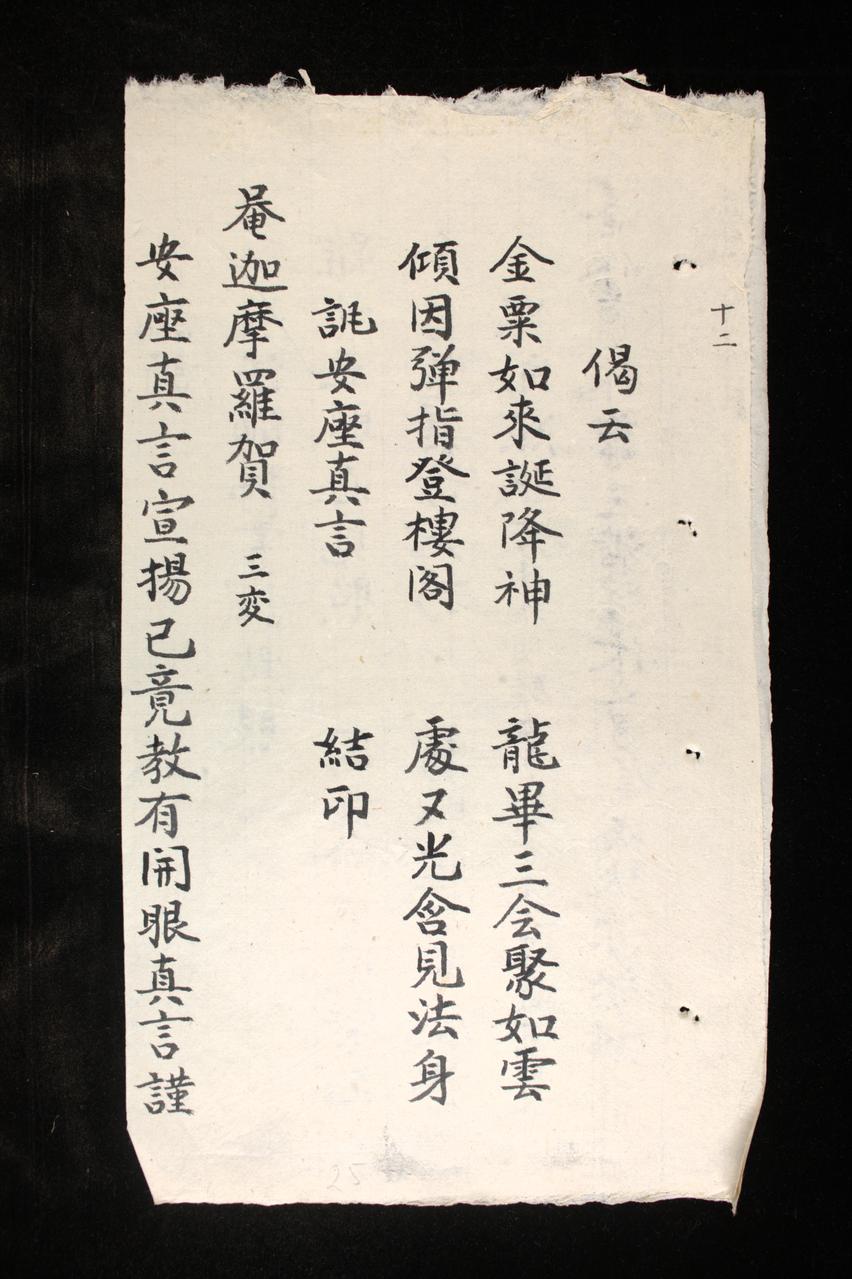 十二
偈云
金粟如來誕降神　龍畢三会聚如雲
傾因弾指登樓阁　處又光含見法身
誂安座真言　結印
菴迦摩羅賀　三変
安座真言宣揚已竟教有開眼真言謹
25